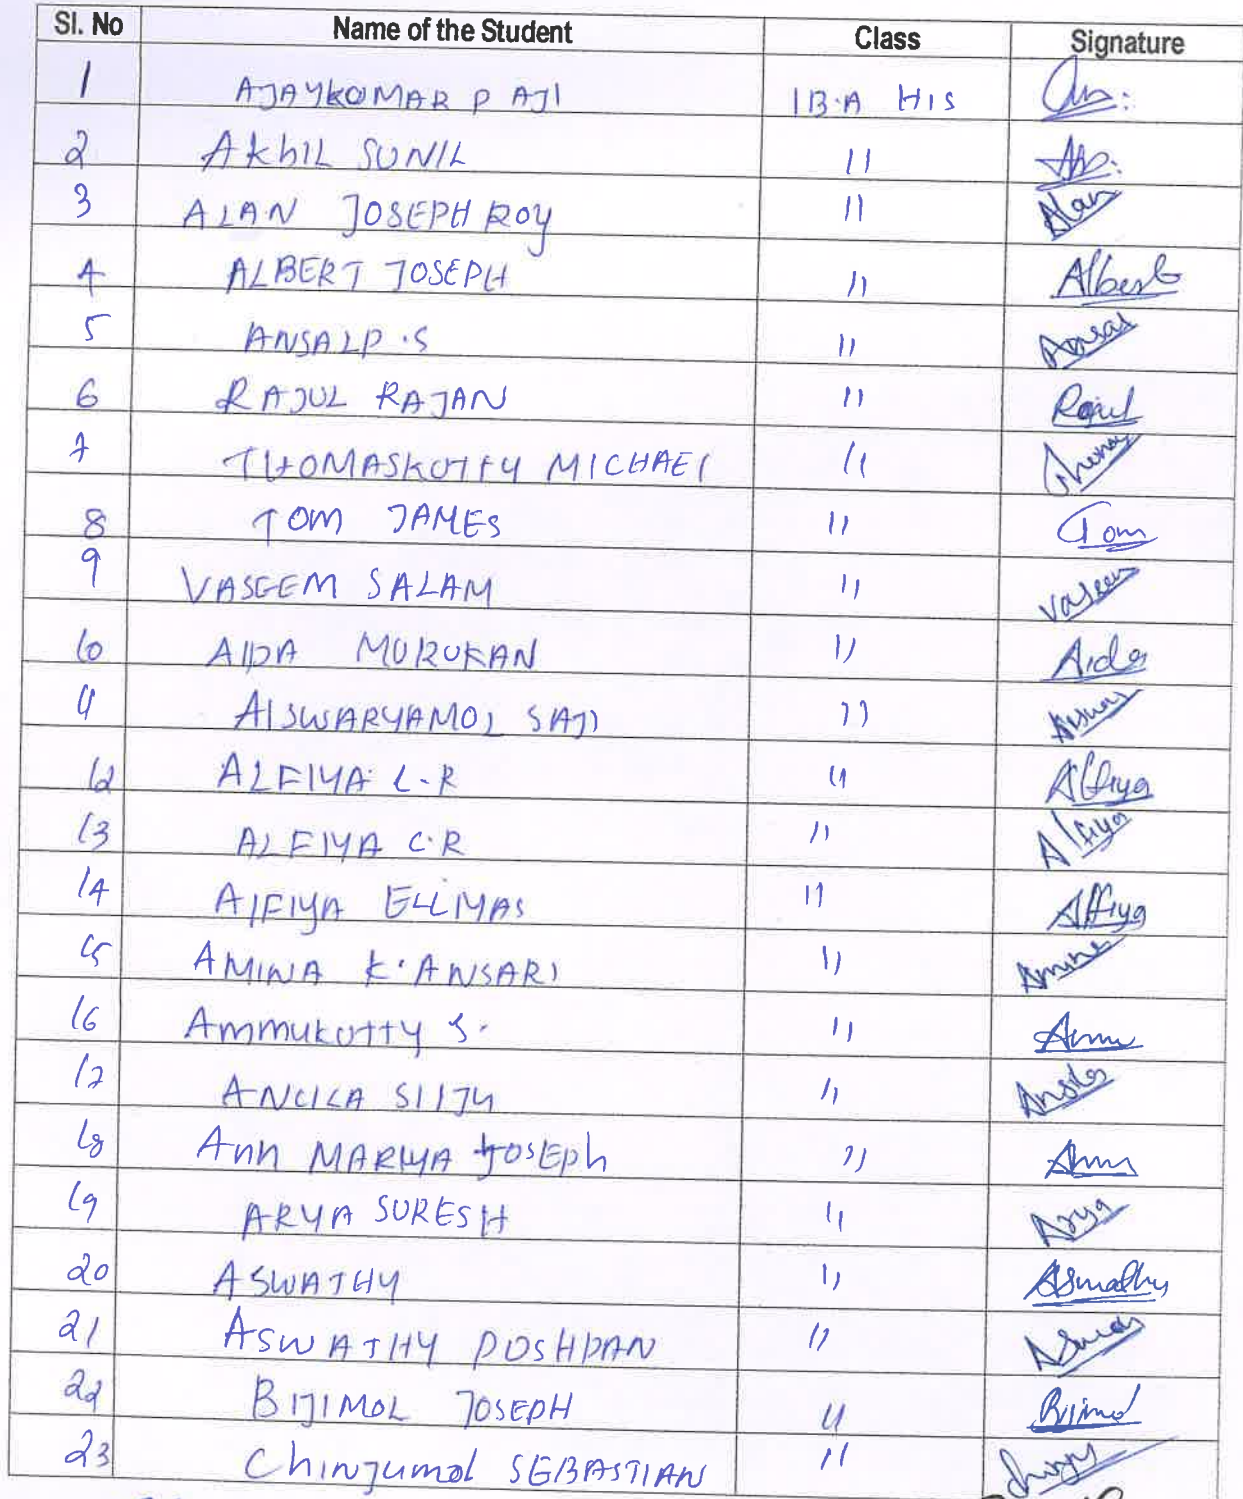 Sl. No Name of the Student Class Signature
1 AJAYKUMAR P AJI I B.A HIS
2 AkhIL SUNIL 11
3 ALAN JOSEPH ROY 11 Alan
4 ALBERT JOSEPH 11 Albert
5 ANSAL P.S 11 Ansal
6 RAJUL RAJAN 11 Rajul
7 THOMASKUTTY MICHAEL 11
8 TOM JAMES 11 Tom
9 VASEEM SALAM 11 Vaseem
10 AIDA MURUKAN 11 Aida
11 AISWARYAMOL SAJI 11
12 ALFIYA C.R 11 Alfiya
13 ALFIYA C.R 11 Alfiya
14 AlFIYA ELLIYAS 11 Alfiya
15 AMINA K.ANSARI 11 Amina
16 Ammukutty S. 11 Ammu
17 ANCILA SIJJU 11
18 Ann MARIYA JOSEph 11 Ann
19 ARYA SURESH 11 Arya
20 ASWATHY 11 Aswathy
21 ASWATHY PUSHPAN 11
22 BIJIMOL JOSEPH 11 Bijimol
23 ChinJumol SEBASTIAN 11